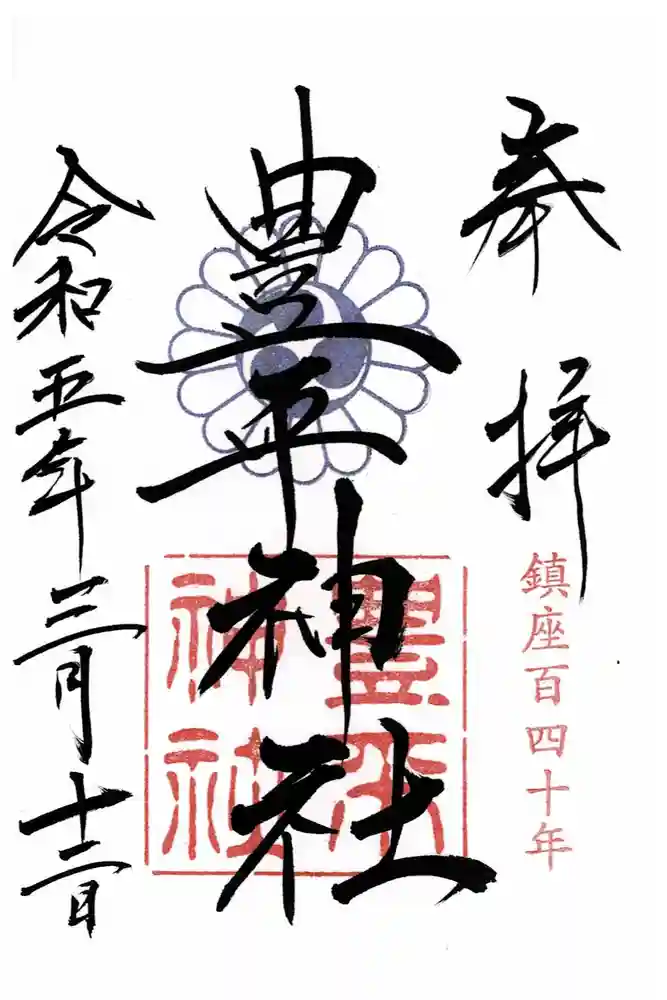 奉拝
鎮座百四十年
豊平神社
豊平
神社
令和五年三月十二日